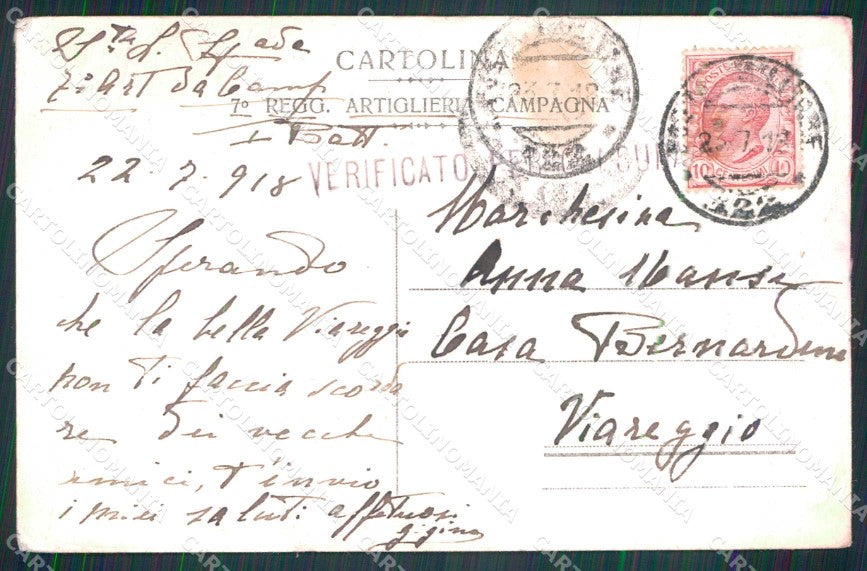 S. Spada
7° Art da Camp
I Batt.
22 7 918
CARTOLINA
7° REGG. ARTIGLIERIA CAMPAGNA
VERIFICATO PER
23.7.18
23.7.18
POSTE
10 10
Sperando
che la bella Viareggio
non ti faccia scorda
re dei vecchi
amici, t'invio
i miei saluti affettuosi
Gigino
Marchesina
Anna Mansi
Casa Bernardini
Viareggio
CARTOLINOMANIA